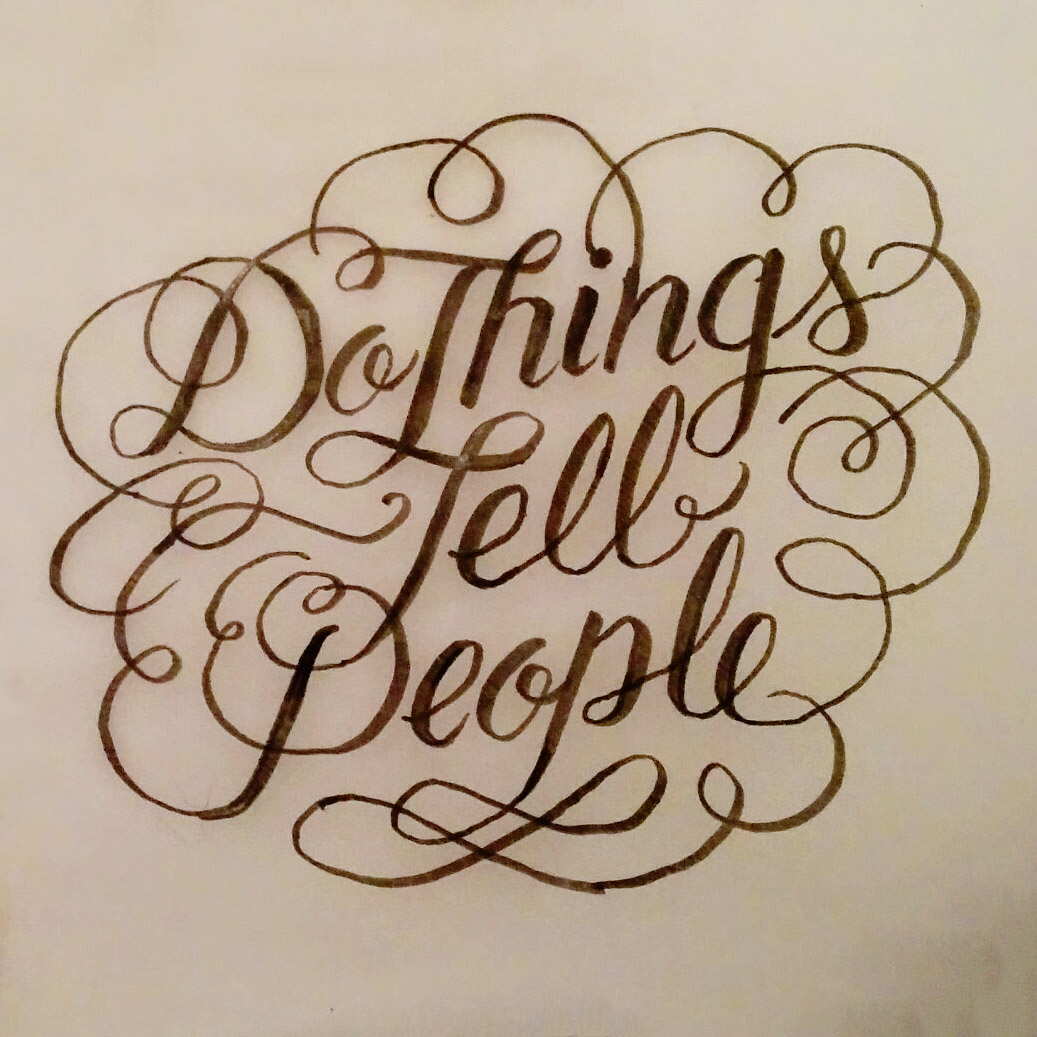 Do Things
Tell
People